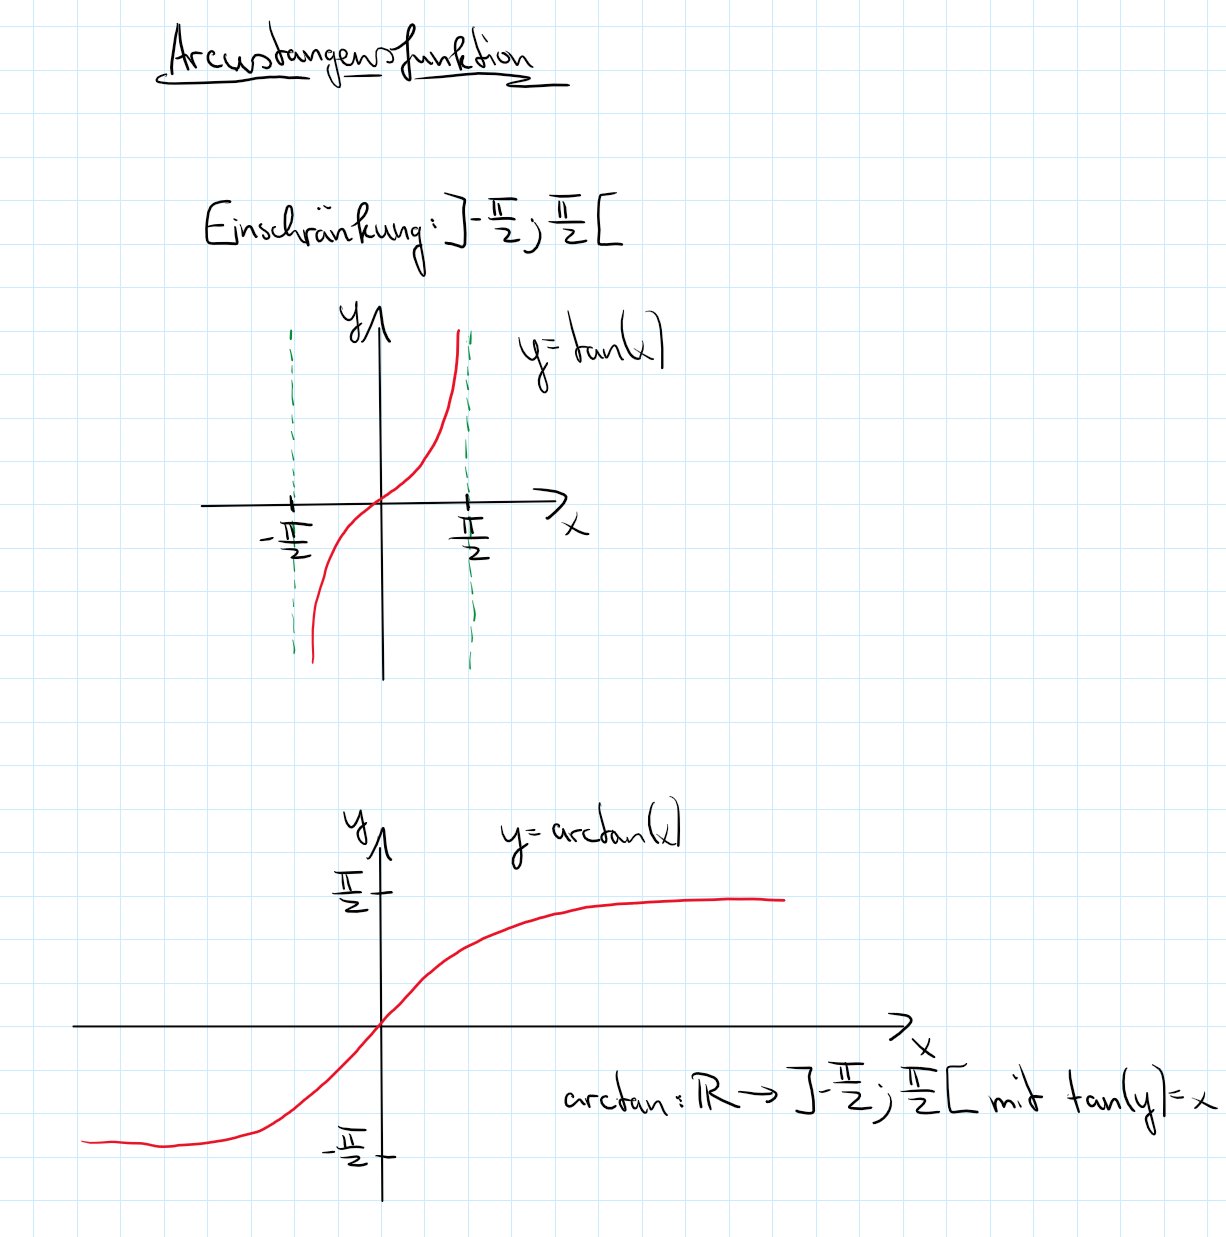 Arcustangensfunktion
Einschränkung: ]-π/2; π/2[
y
y=tan(x)
x
-π/2
π/2
y
y=arctan(x)
π/2
x
arctan: ℝ → ]-π/2; π/2[ mit tan(y)=x
-π/2